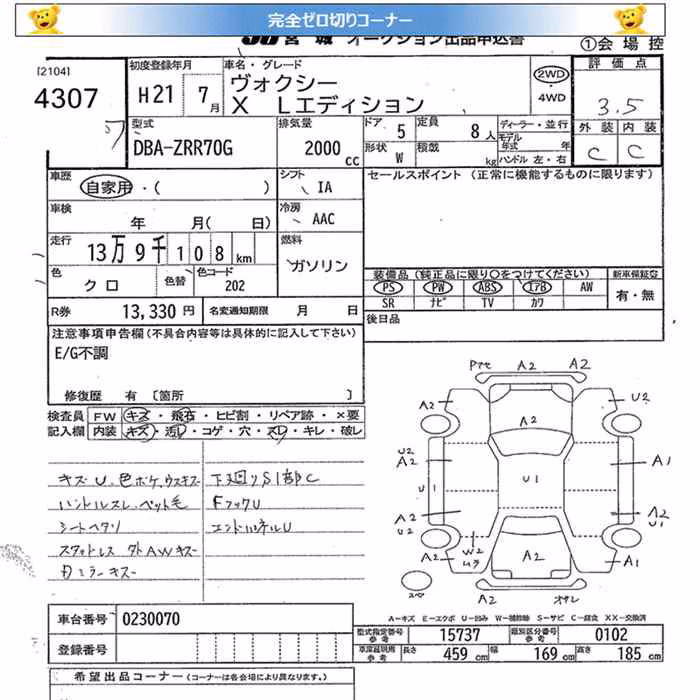 完全ゼロ切りコーナー
JU宮城 オークション出品申込書
①会場控
[2104]
4307
初度登録年月
H21 7月
車名・グレード
ヴォクシー
X Lエディション
2WD
4WD
評価点
3.5
外装 内装
C C
型式
DBA-ZRR70G
排気量
2000 cc
ドア 5
定員 8人
形状 W
積載 kg
ディーラー・並行
モデル年式 年
ハンドル 左・右
車歴
自家用・( )
シフト IA
セールスポイント (正常に機能するものに限ります)
車検
年 月( 日)
冷房 AAC
走行
13万9千108km
燃料
ガソリン
色
クロ
色替
色コード
202
装備品(純正品に限り○をつけてください)
新車保証書
PS PW ABS エアB AW
SR ナビ TV カワ
有・無
R券 13,330円
名変通知期限 月 日
後日品
注意事項申告欄(不具合内容等は具体的に記入して下さい)
E/G不調
修復歴 有 [箇所 ]
検査員記入欄
FW キズ・飛石・ヒビ割・リペア跡・×要
内装 キズ・汚レ・コゲ・穴・スレ・キレ・破レ
キズU、色ボケ、ウスキズ
ハンドルスレ、ペット毛
シートヘタリ
スタッドレス 外AWキズ
ミラーキズ
下廻りS1部C
FフックU
エンドパネルU
Pアセ A2 A2
A2 A2 U2
U2
A2 U1 A1
U1
A2 A2
U1
U2 W2
ムラ
A2 A2 A1
スペア
A2 オサレ
A-キズ E-エクボ U-凹み W-補修跡 S-サビ C-腐食 XX-交換済
車台番号 0230070
登録番号
型式指定番号 参考 15737
類別区分番号 参考 0102
車庫証明用 参考 長さ 459cm 幅 169cm 高さ 185cm
希望出品コーナー(コーナーは各会場により異なります。)